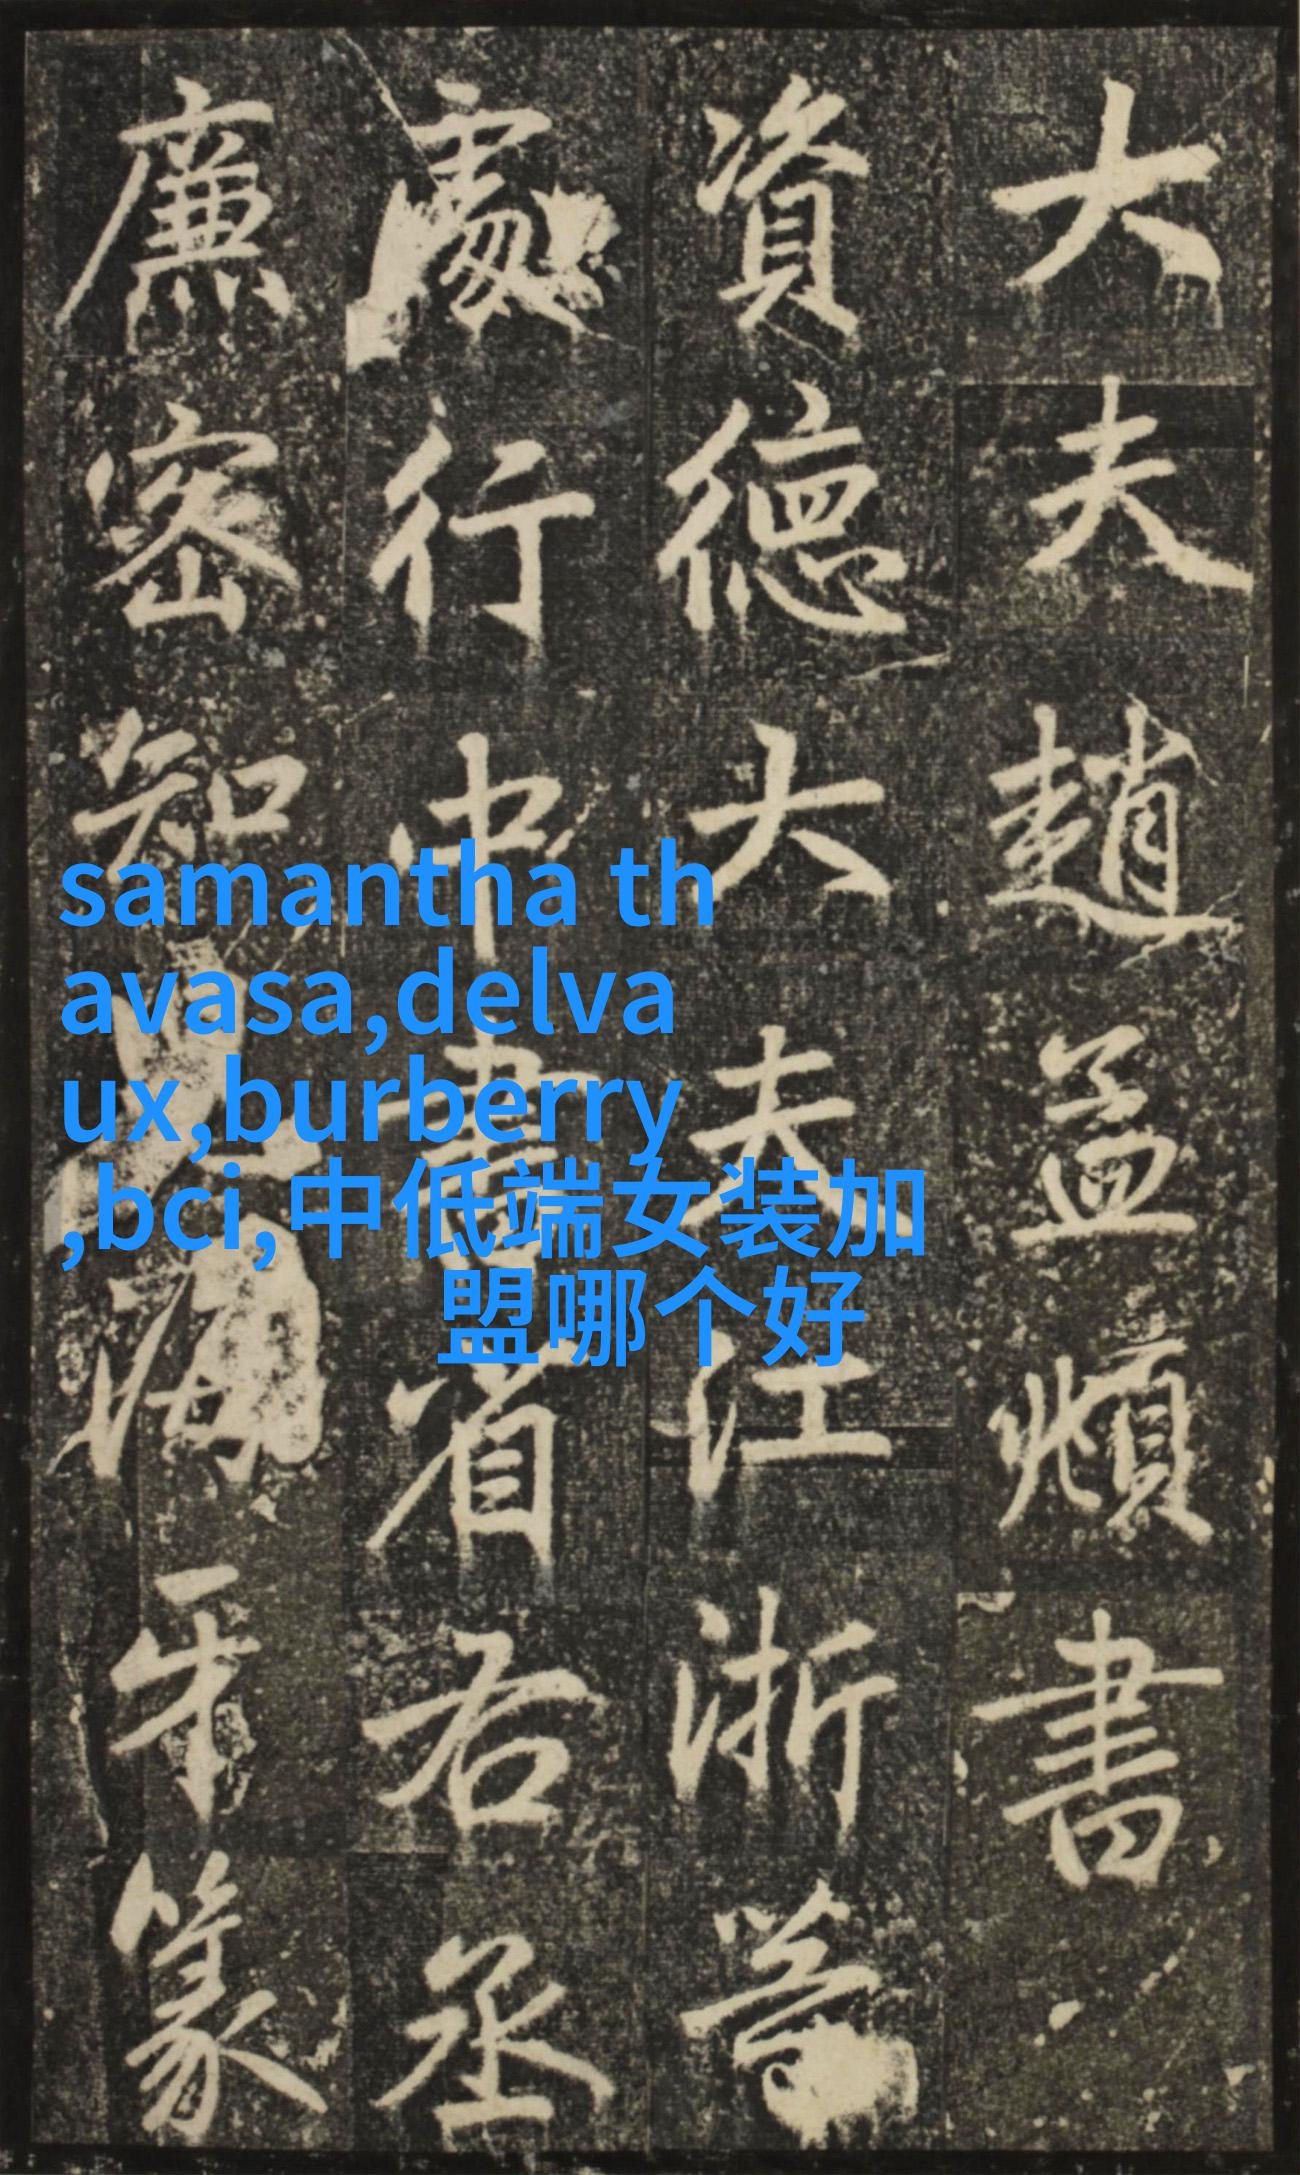 大夫趙孟頫書
資德大夫江浙等
處行中書省右丞
廉密知海牙篆
samantha th
avasa,delva
ux,burberry
,bci,中低端女装加
盟哪个好